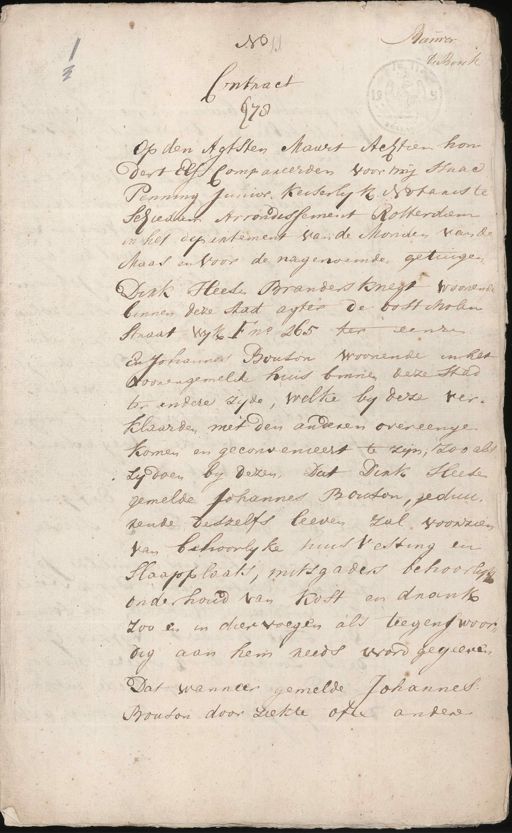 No 11
Contract
§78
Op den Agtsten Maart Achtien hon
dert Elf Compareerden voor mij Isaac
Penning Junior Keiserlyk Notaris te
Schiedam Arrondissement Rotterdam
in het departement van de Monden van de
Maas en voor de nagenoemde getuigen
Dirk Heese Branders Knegt woonende
binnen deze Stad agter de oost molen
straat wyk F no 265 ter eenre
En Johannes Bouson woonende in het
voorengemelde huis binnen deze Stad
ter andere zyde, welke by deze ver-
klaarden met den anderen overeenge
komen en geconvenieert te zyn, zoo als
zy doen by dezen Dat Dirk Heese
gemelde Johannes Bouson, geduu,
rende deszelfs leeven zal voorzien
van behoorlyke huisvesting en
Slaapplaats, mitsgaders behoorlyk
onderhoud van kost en drank
zoo en in dier voegen als teegenswoor
dig aan hem reeds word gegeeven
Dat wanneer gemelde Johannes
Bouson door ziekte ofte andere